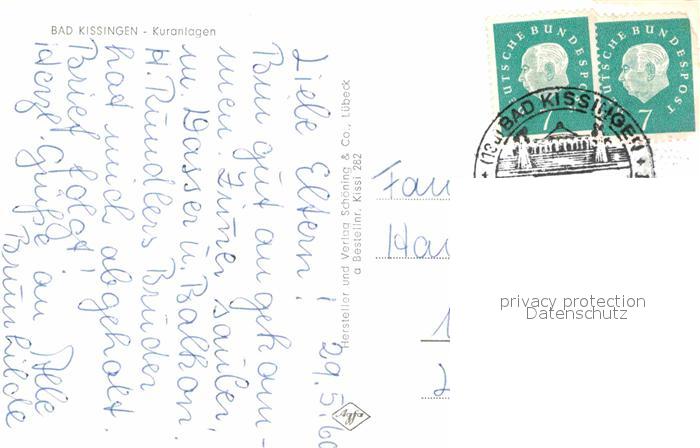 BAD KISSINGEN - Kuranlagen
29.5.60
Liebe Eltern!
Bin gut angekom-
men. Zimmer sauber,
m. Wasser u. Balkon.
H. Bruder
hat mich abgeholt.
Brief folgt!
Herzl. Grüße an Alle
Brunhilde
Hersteller und Verlag Schöning & Co., Lübeck
a Bestellnr. Kissi 282
Agfa
DEUTSCHE BUNDESPOST
7
DEUTSCHE BUNDESPOST
7
BAD KISSINGEN
Fam
Hau
1
privacy protection
Datenschutz